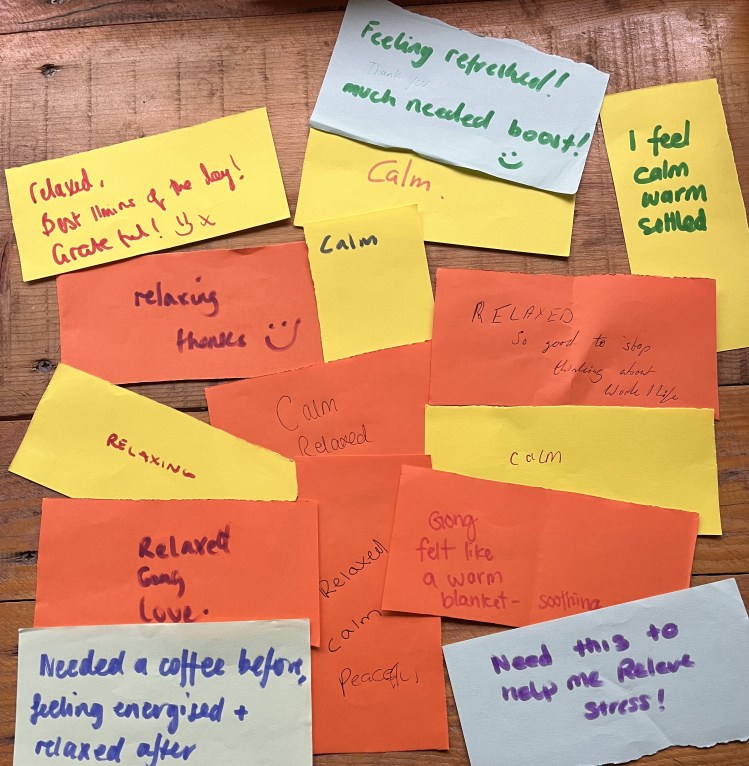 Feeling refreshed!
Thank you
much needed boost!
I feel
calm
warm
settled
Calm.
relaxed,
Best 11mins of the day!
Grateful! x
Calm
relaxing
thanks
RELAXED
So good to stop
thinking about
Work / Life
Calm
Relaxed
RELAXING
CALM
Relaxed
Gong
Love.
Gong
felt like
a warm
blanket - soothing
Relaxed
Calm
Peaceful
Needed a coffee before,
feeling energised +
relaxed after
Need this to
help me Releve
stress!